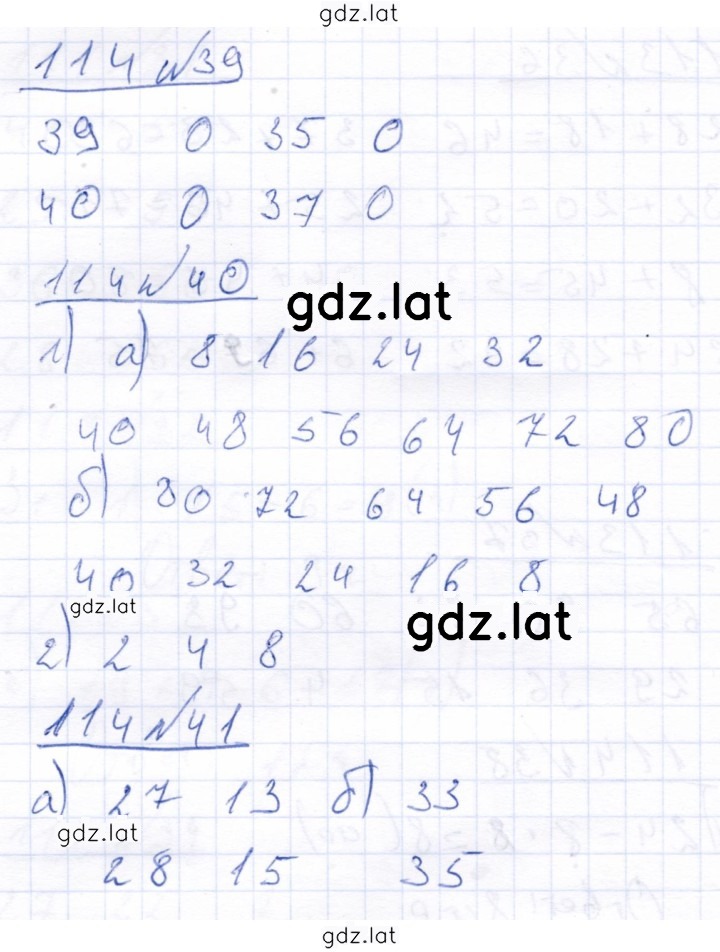 gdz.lat
114 №39
39 0 35 0
40 0 37 0
114 №40
gdz.lat
1) а) 8 16 24 32
40 48 56 64 72 80
б) 80 72 64 56 48
40 32 24 16 8
gdz.lat
gdz.lat
2) 2 4 8
114 №41
а) 27 13 б) 33
gdz.lat
28 15 35
gdz.lat